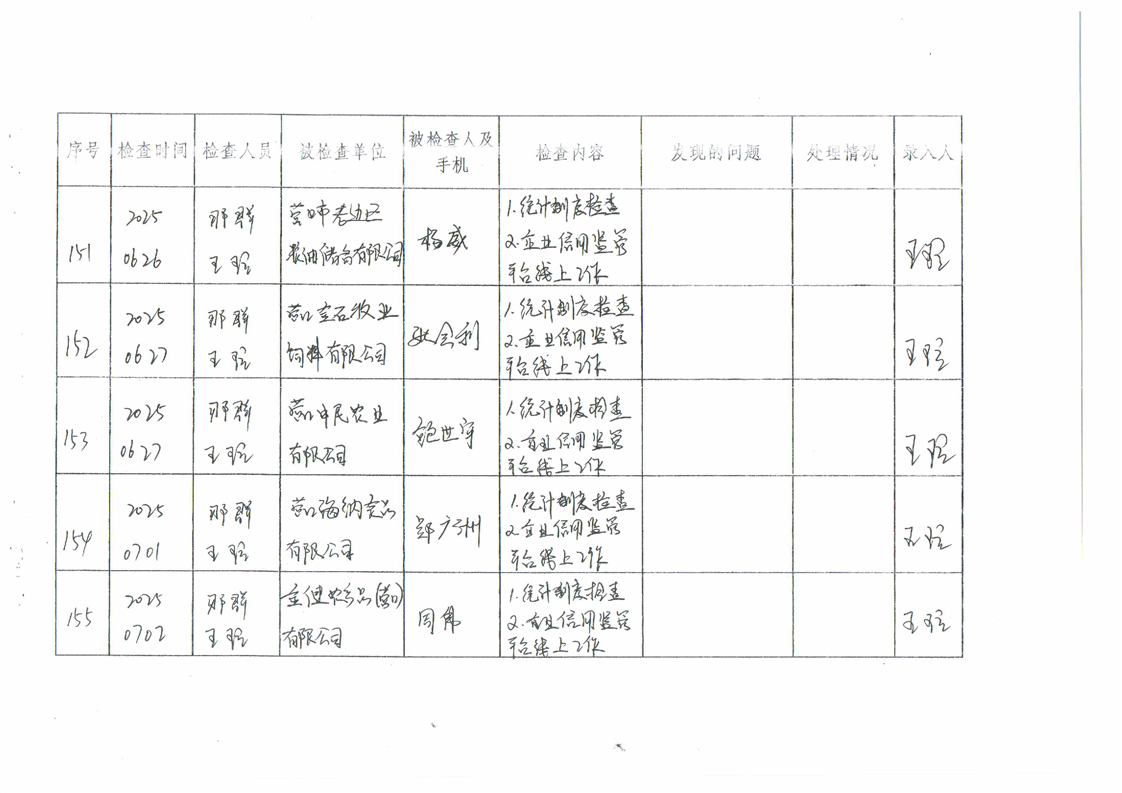 序号 检查时间 检查人员 被检查单位 被检查人及手机 检查内容 发现的问题 处理情况 录入人
151 2025 那群 营口市老边区 杨威 1.统计制度检查
0626 王 粮油储备有限公司 2.企业信用监管 王
平台线上工作
152 2025 那群 营口宝石牧业 1.统计制度检查
0627 王 饲料有限公司 2.企业信用监管 王
平台线上工作
153 2025 那群 营口申民农业 鲍世宇 1.统计制度检查
0627 王 有限公司 2.企业信用监管 王
平台线上工作
154 2025 那群 营口海纳食品 郑广洲 1.统计制度检查
0701 王 有限公司 2.企业信用监管 王
平台线上工作
155 2025 那群 农产品(营口) 周伟 1.统计制度检查
0702 王 有限公司 2.企业信用监管 王
平台线上工作